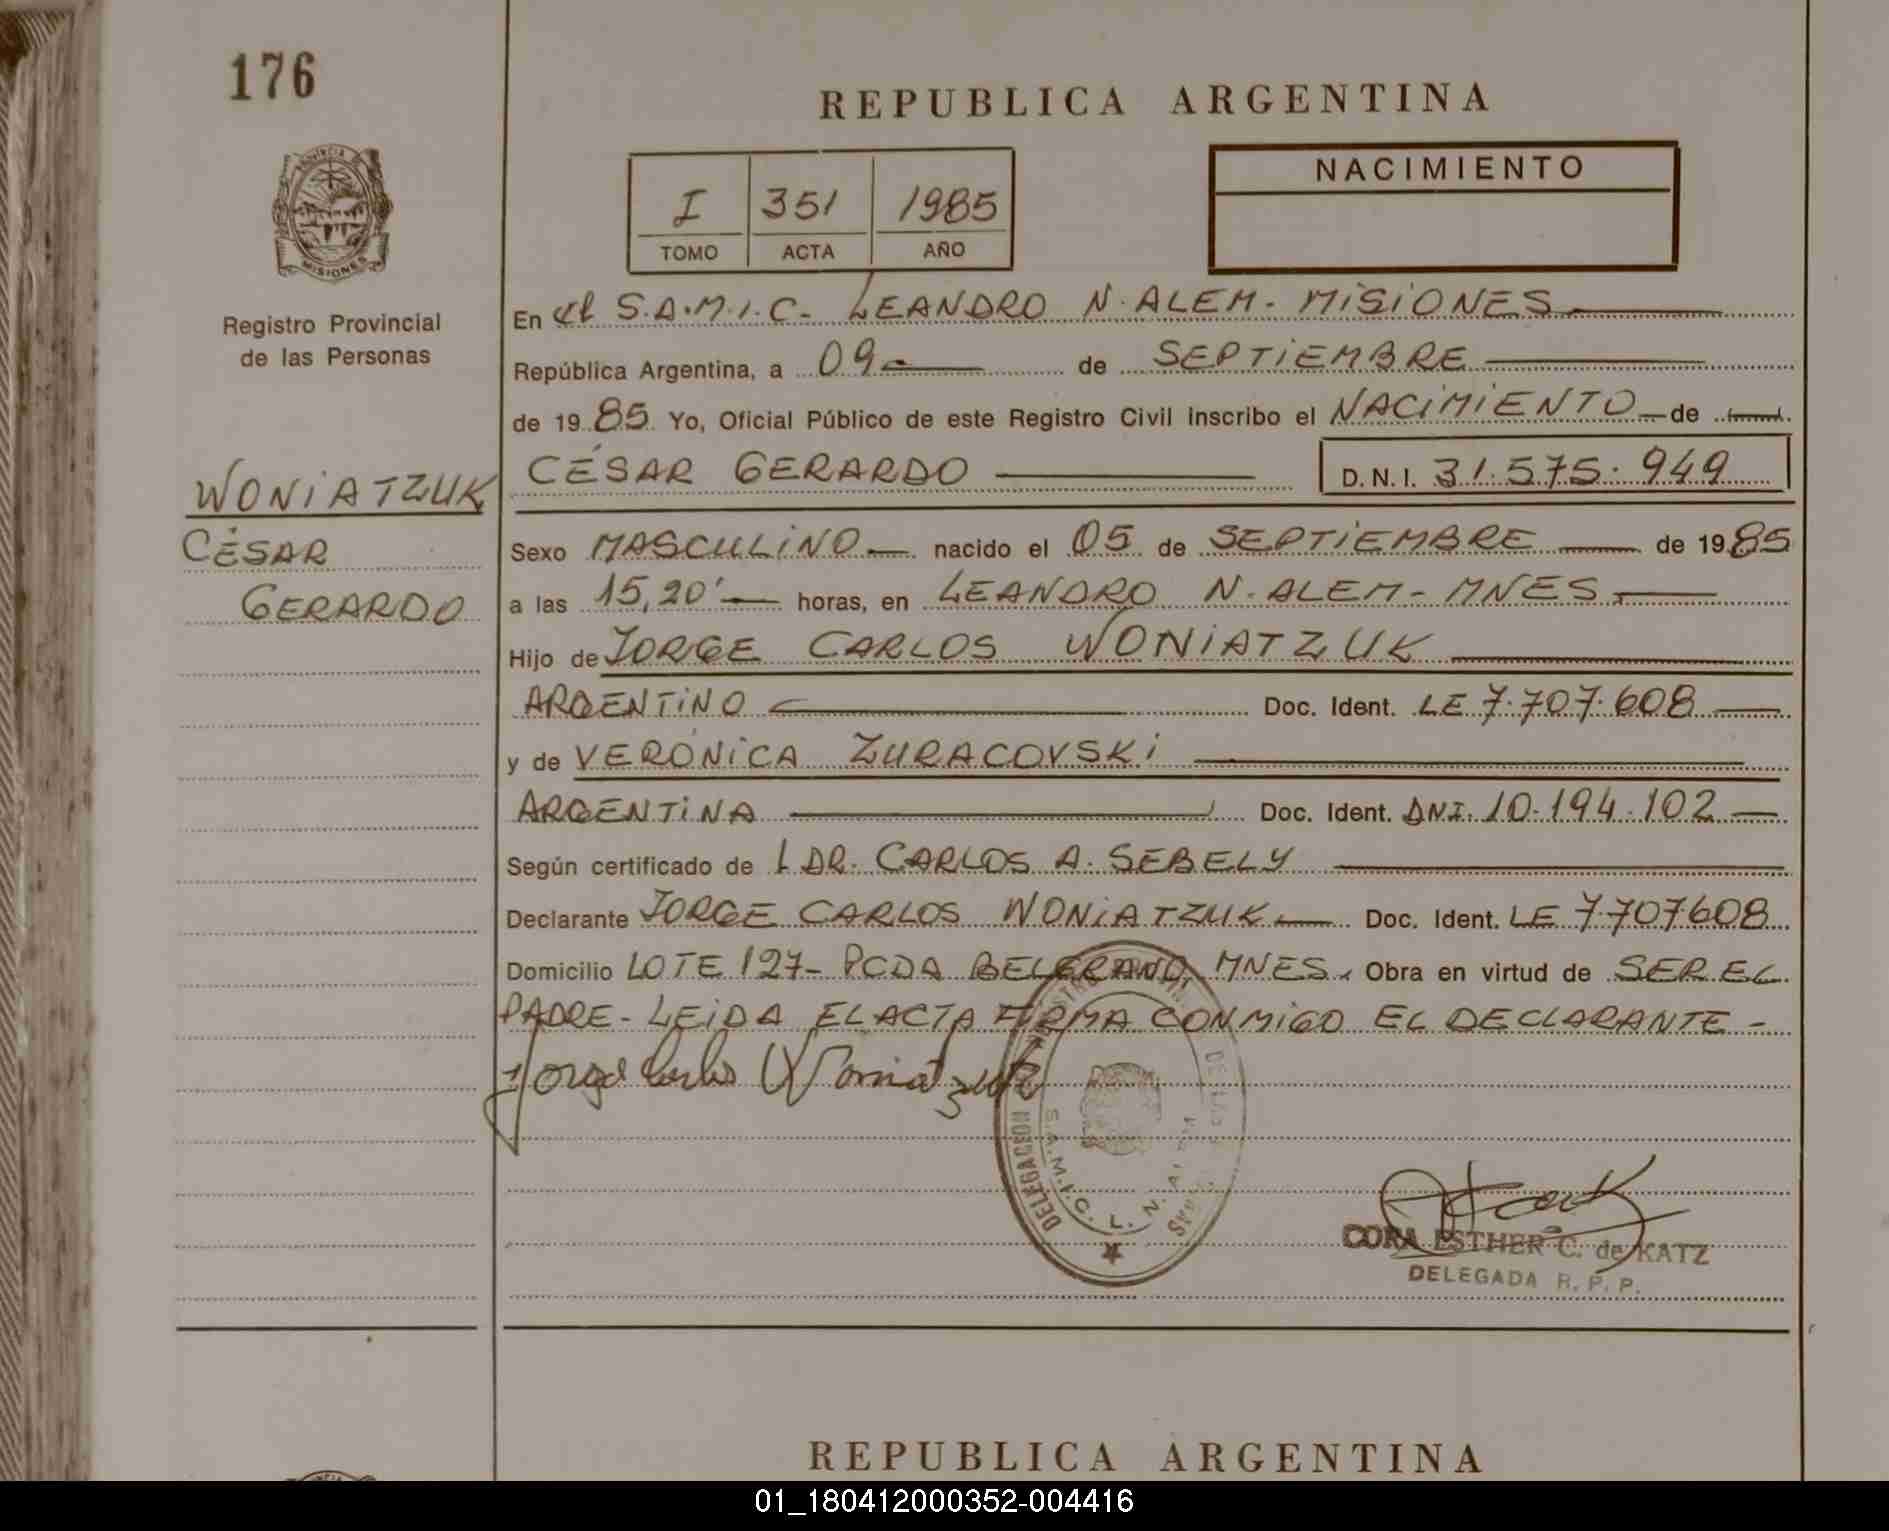 176
REPUBLICA ARGENTINA
PROVINCIA DE
MISIONES
Registro Provincial
de las Personas
I 351 1985
TOMO ACTA AÑO
NACIMIENTO
En el S.A.M.I.C. LEANDRO N. ALEM - MISIONES
República Argentina, a 09 de SEPTIEMBRE
de 1985 Yo, Oficial Público de este Registro Civil inscribo el NACIMIENTO de
CÉSAR GERARDO D.N.I. 31.575.949
WONIATZUK
CÉSAR
GERARDO
Sexo MASCULINO nacido el 05 de SEPTIEMBRE de 1985
a las 15,20' horas, en LEANDRO N. ALEM - MNES
Hijo de JORGE CARLOS WONIATZUK
ARGENTINO Doc. Ident. LE 7.707.608
y de VERÓNICA ZURACOVSKI
ARGENTINA Doc. Ident. DNI. 10.194.102
Según certificado de L DR. CARLOS A. SEBELY
Declarante JORGE CARLOS WONIATZUK Doc. Ident. LE 7.707.608
Domicilio LOTE 127 - PCDA BELGRANO, MNES. Obra en virtud de SER EL
PADRE - LEIDA EL ACTA FIRMA CONMIGO EL DECLARANTE -
Jorge Carlos Woniatzuk
DELEGACION
S.A.M.I.C. L. N. ALEM
CORA ESTHER C. de KATZ
DELEGADA R. P. P.
REPUBLICA ARGENTINA
01_180412000352-004416